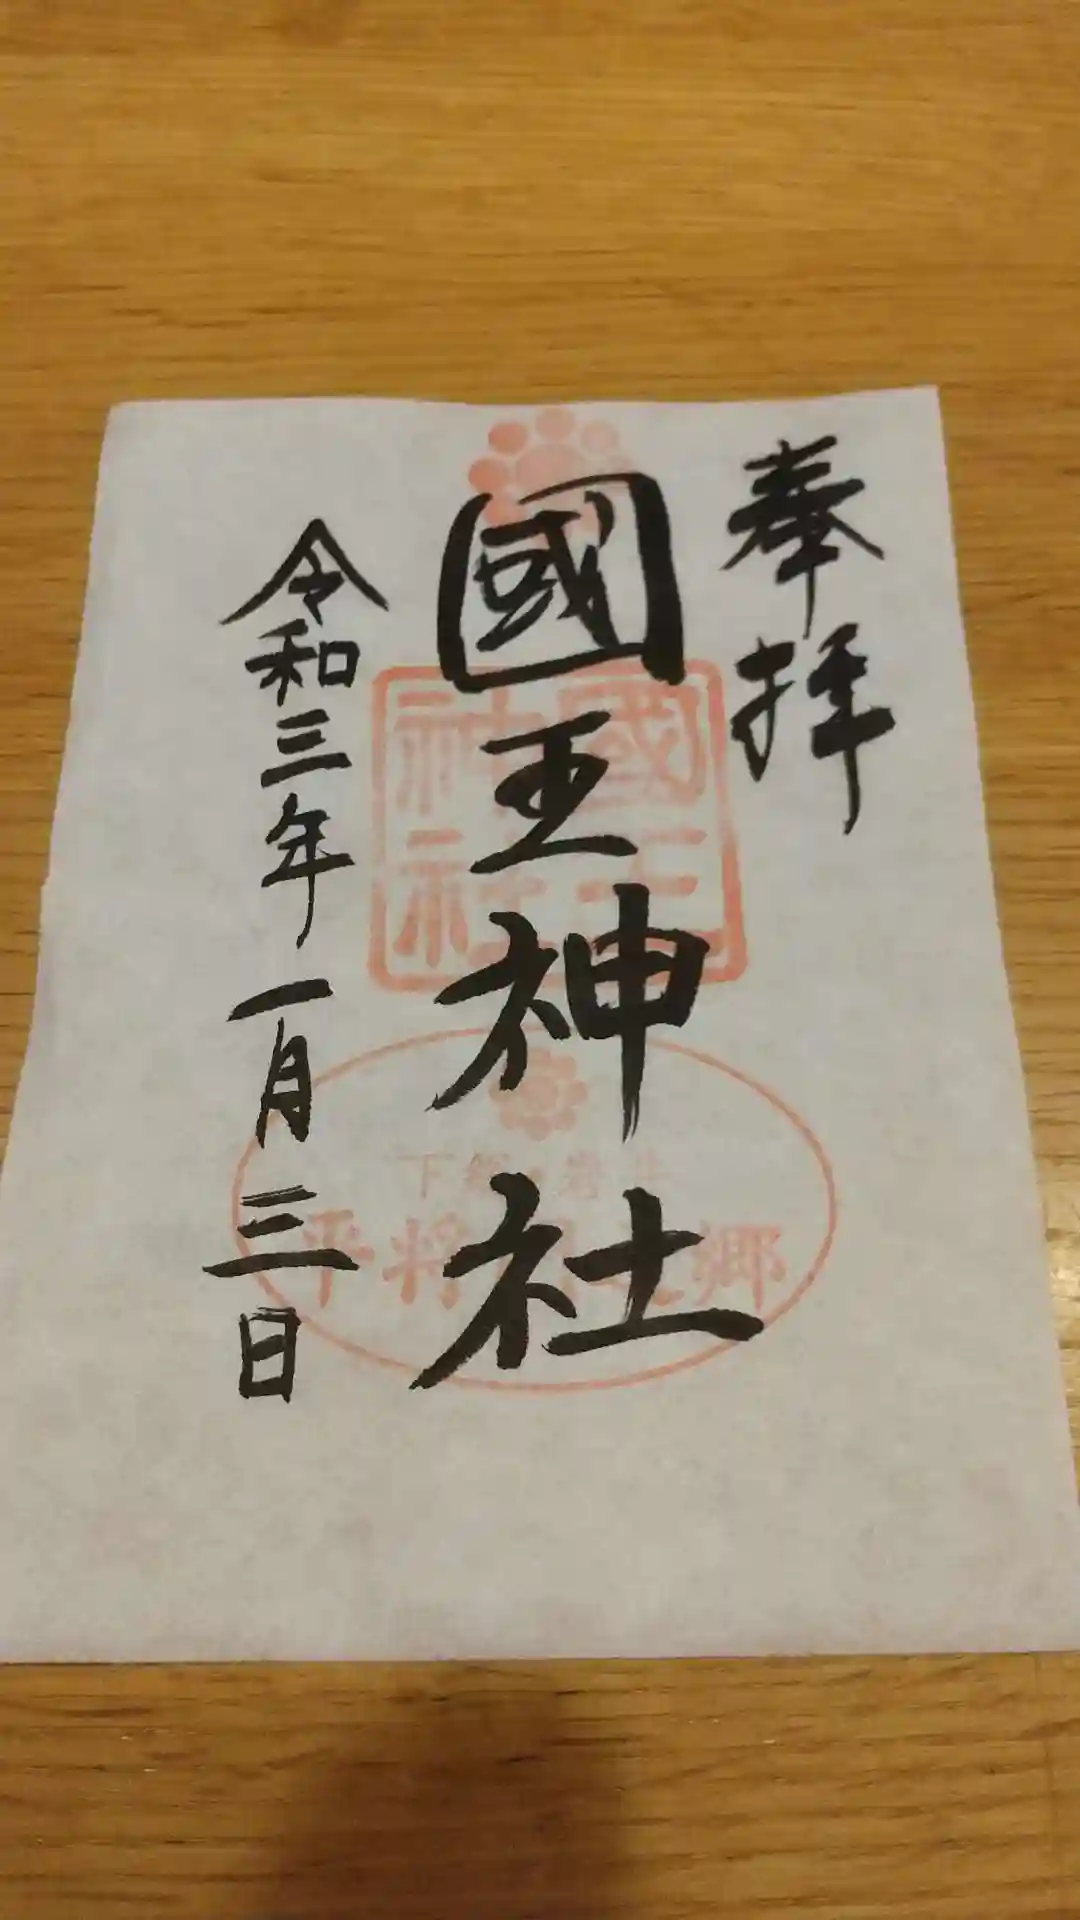 奉拝
國王神社
令和三年一月三日
國王
神社
平将
郷